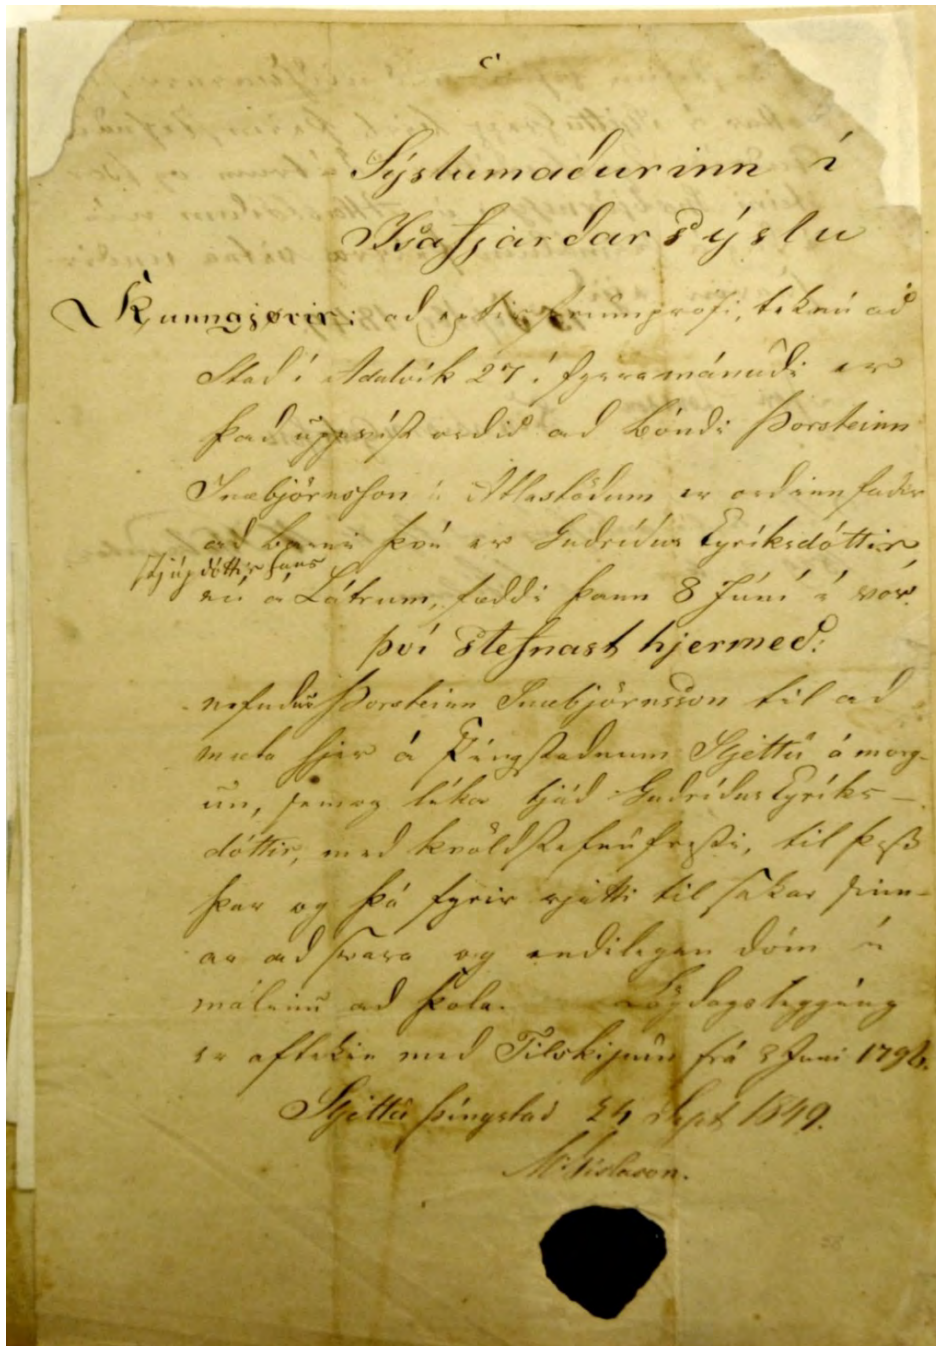 Sýslumadurinn í
Ísafjardarsýslu
Kunngjørir: ad eptir forumprófi, teknu ad
Stad í Adalvík 27 í fyrra mánudi er
þad uppvíst ordid ad bóndi Þorsteinn
Snæbjörnsson á Atlastödum er ordinn fadir
ad barni því er Gudrídur Eyríksdóttir
stjúpdóttir hans
nú á Látrum, fæddi þann 8 Júní í vor.
því stefnast hjermed:
nefndur Þorsteinn Snæbjörnsson til ad
mæta hjer á Þíngstadnum Sljettu á morg-
un, sem og líka tjád Gudrídur Eyríks-
dóttir, med kvöldstefnufresti, til þess
þar og þá fyrir rjetti til sakar sinn-
ar ad svara og endilegan dóm í
málinu ad þola. Lögdagsleggíng
er aftekin med Tilskipun frá 3 Juni 1796.
Sljettu þíngstad 24 Sept 1849.
M Gíslason.